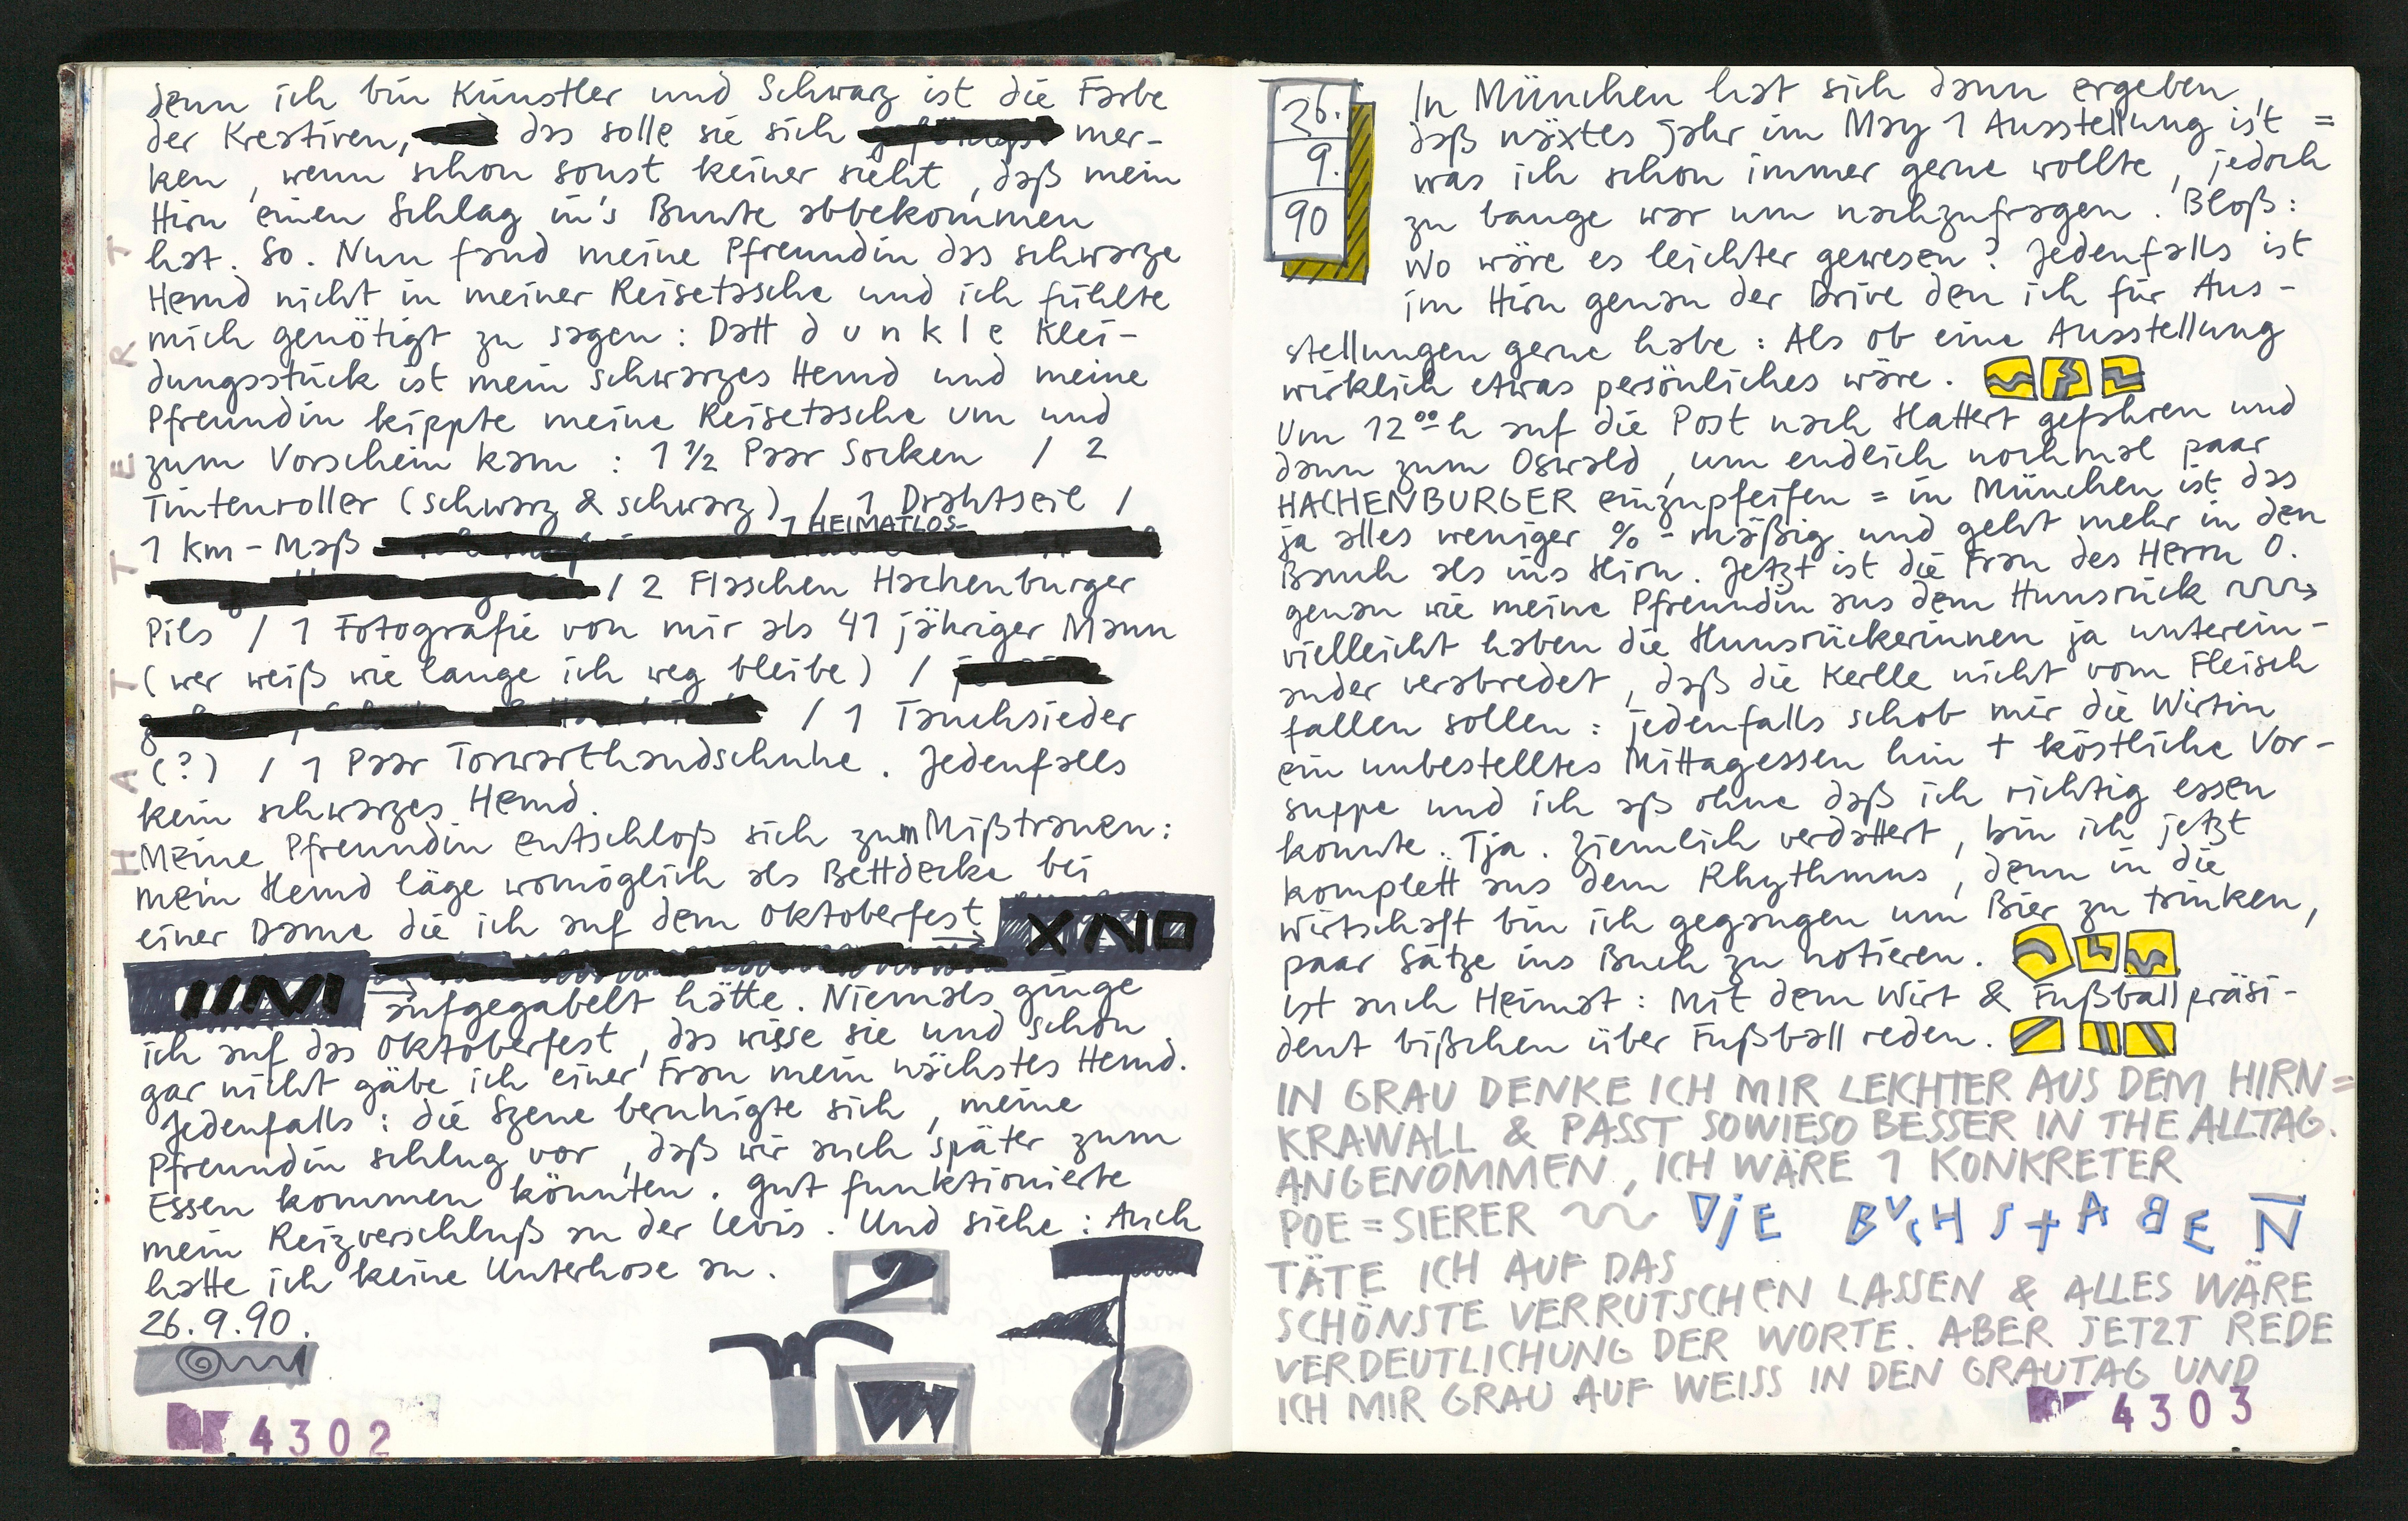 denn ich bin Künstler und Schwarz ist die Farbe
der Kreativen, das solle sie sich mer-
ken, wenn schon sonst keiner sieht, daß mein
Hirn einen Schlag in's Bunte abbekommen
hat. So. Nun fand meine Pfreundin das schwarze
Hemd nicht in meiner Reisetasche und ich fühlte
mich genötigt zu sagen: Datt d u n k l e Klei-
dungsstück ist mein schwarzes Hemd und meine
Pfreundin kippte meine Reisetasche um und
zum Vorschein kam : 1 ½ Paar Socken / 2
Tintenroller (schwarz & schwarz) / 1 Drahtseil /
1 HEIMATLOS-
1 Km-Maß
/ 2 Flaschen Hachenburger
Pils / 1 Fotografie von mir als 41 jähriger Mann
(wer weiß wie lange ich weg bleibe) /
/ 1 Tauchsieder
(?) / 1 Paar Torwarthandschuhe. Jedenfalls
kein schwarzes Hemd.
Meine Pfreundin entschloß sich zum Mißtrauen:
mein Hemd läge womöglich als Bettdecke bei
einer Dame die ich auf dem Oktoberfest
aufgegabelt hätte. Niemals ginge
ich auf das Oktoberfest, das wisse sie und schon
gar nicht gäbe ich einer Frau mein nächstes Hemd.
Jedenfalls: die Szene beruhigte sich, meine
Pfreundin schlug vor, daß wir auch später zum
Essen kommen könnten. Gut funktionierte
mein Reizverschluß an der Levis. Und siehe: Auch
hatte ich keine Unterhose an.
26.9.90.
4302
HATTERT
26.
9.
90
In München hat sich dann ergeben,
daß näxtes Jahr im May 1 Ausstellung is't =
was ich schon immer gerne wollte, jedoch
zu bange war um nachzufragen. Bloß:
Wo wäre es leichter gewesen? Jedenfalls ist
im Hirn genau der Drive den ich für Aus-
stellungen gerne habe: Als ob eine Ausstellung
wirklich etwas persönliches wäre.
Um 12⁰⁰ h auf die Post nach Hattert gefahren und
dann zum Oswald, um endlich nochmal paar
HACHENBURGER einzupfeifen = in München ist das
ja alles weniger %-mäßig und geht mehr in den
Bauch als ins Hirn. Jetzt ist die Frau des Herrn O.
genau wie meine Pfreundin aus dem Hunsrück
vielleicht haben die Hunsrückerinnen ja unterein-
ander verabredet, daß die Kerlle nicht vom Fleisch
fallen sollen: jedenfalls schob mir die Wirtin
ein unbestelltes Mittagessen hin + köstliche Vor-
suppe und ich aß ohne daß ich richtig essen
konnte. Tja. Ziemlich verdattert, bin ich jetzt
komplett aus dem Rhythmus, denn in die
Wirtschaft bin ich gegangen um Bier zu trinken,
paar Sätze ins Buch zu notieren.
Ist auch Heimat: Mit dem Wirt & Fußballpräsi-
dent bißchen über Fußball reden.
IN GRAU DENKE ICH MIR LEICHTER AUS DEM HIRN=
KRAWALL & PASST SOWIESO BESSER IN THE ALLTAG.
ANGENOMMEN, ICH WÄRE 1 KONKRETER
POE=SIERER DIE BUCHSTABEN
TÄTE ICH AUF DAS
SCHÖNSTE VERRUTSCHEN LASSEN & ALLES WÄRE
VERDEUTLICHUNG DER WORTE. ABER JETZT REDE
ICH MIR GRAU AUF WEISS IN DEN GRAUTAG UND
4303